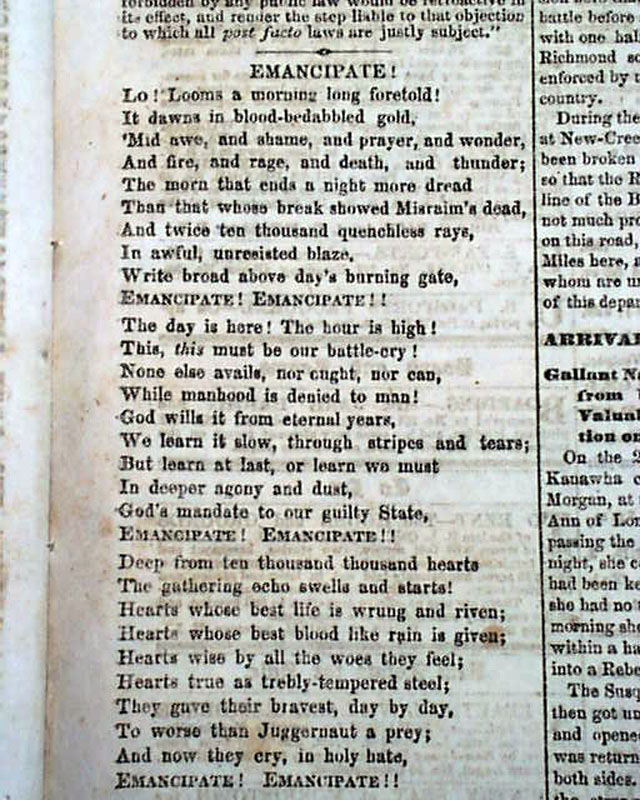 forbidden by any public law would be retroactive in
its effect, and render the step liable to that objection
to which all post facto laws are justly subject."
EMANCIPATE!
Lo! Looms a morning long foretold!
It dawns in blood-bedabbled gold,
'Mid awe, and shame, and prayer, and wonder,
And fire, and rage, and death, and thunder;
The morn that ends a night more dread
Than that whose break showed Misraim's dead,
And twice ten thousand quenchless rays,
In awful, unresisted blaze,
Write broad above day's burning gate,
EMANCIPATE! EMANCIPATE!!
The day is here! The hour is high!
This, this must be our battle-cry!
None else avails, nor ought, nor can,
While manhood is denied to man!
God wills it from eternal years,
We learn it slow, through stripes and tears;
But learn at last, or learn we must
In deeper agony and dust,
God's mandate to our guilty State,
EMANCIPATE! EMANCIPATE!!
Deep from ten thousand thousand hearts
The gathering echo swells and starts!
Hearts whose best life is wrung and riven;
Hearts whose best blood like rain is given;
Hearts wise by all the woes they feel;
Hearts true as trebly-tempered steel;
They gave their bravest, day by day,
To worse than Juggernaut a prey;
And now they cry, in holy hate,
EMANCIPATE! EMANCIPATE!!
battle before
with one hal
Richmond so
enforced by t
country.
During the
at New-Cree
been broken
so that the R
line of the B
not much pro
on this road,
Miles here, a
whom are un
of this depar
ARRIVAL
Gallant Na
from
Valual
tion on
On the 2
Kanawha c
Morgan, at
Ann of Lon
passing the
night, she c
had been ke
she had no t
morning she
within a ha
into a Rebe
The Susq
then got un
and opened
was return
both sides.